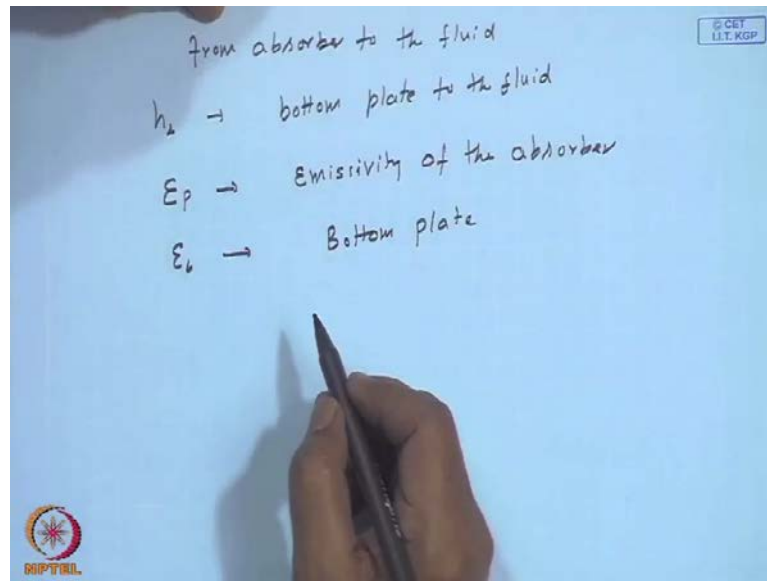 © CET
I.I.T. KGP
from absorber to the fluid
h_b → bottom plate to the fluid
ε_p → Emissivity of the absorber
ε_b → Bottom plate
NPTEL